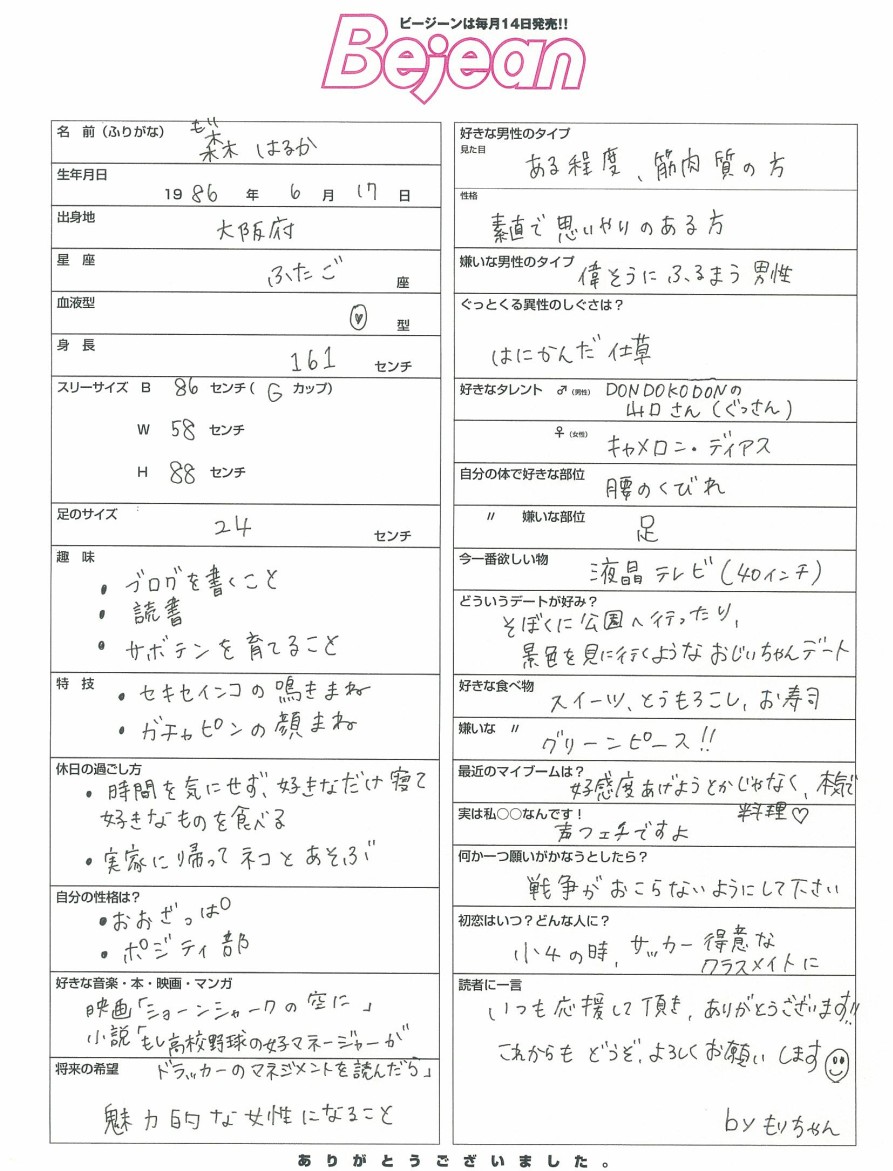 ビージーンは毎月14日発売!!
Bejean
名　前（ふりがな）
もり
森 はるか
生年月日
19 86 年 6 月 17 日
出身地
大阪府
星　座
ふたご 座
血液型
♡ 型
身　長
161 センチ
スリーサイズ B 86 センチ( G カップ)
W 58 センチ
H 88 センチ
足のサイズ
24 センチ
趣　味
・ブログを書くこと
・読書
・サボテンを育てること
特　技
・セキセインコの鳴きまね
・ガチャピンの顔まね
休日の過ごし方
・時間を気にせず、好きなだけ寝て
好きなものを食べる
・実家に帰ってネコとあそぶ
自分の性格は？
・おおざっぱ
・ポジティ部
好きな音楽・本・映画・マンガ
映画「ショーンシャークの空に」
小説「もし高校野球の女子マネージャーが
ドラッカーのマネジメントを読んだら」
将来の希望
魅力的な女性になること
好きな男性のタイプ
見た目
ある程度、筋肉質の方
性格
素直で思いやりのある方
嫌いな男性のタイプ
偉そうにふるまう男性
ぐっとくる異性のしぐさは？
はにかんだ仕草
好きなタレント ♂（男性） DONDOKODONの
山口さん（ぐっさん）
♀（女性）
キャメロン・ディアス
自分の体で好きな部位
腰のくびれ
〃　嫌いな部位
足
今一番欲しい物
液晶テレビ（40インチ）
どういうデートが好み？
そぼくに公園へ行ったり、
景色を見に行くようなおじいちゃんデート
好きな食べ物
スイーツ、とうもろこし、お寿司
嫌いな 〃
グリーンピース!!
最近のマイブームは？
好感度あげようとかじゃなく、本気で
料理♡
実は私○○なんです！
声フェチですよ
何か一つ願いがかなうとしたら？
戦争がおこらないようにして下さい
初恋はいつ？どんな人に？
小4の時、サッカー得意な
クラスメイトに
読者に一言
いつも応援して頂き、ありがとうございます!!
これからもどうぞ、よろしくお願いします
by もりちゃん
ありがとうございました。